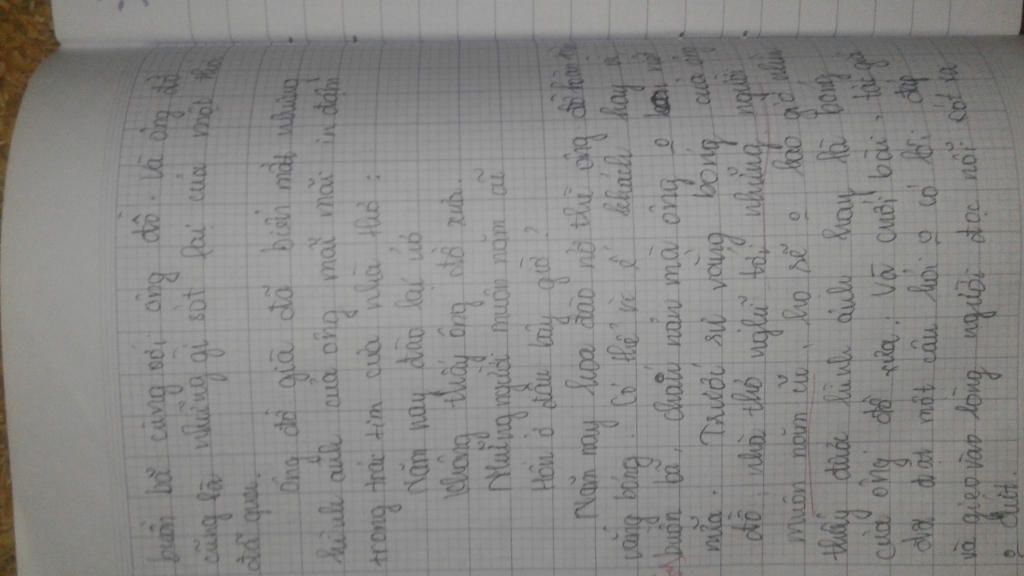 buồn bã cùng với ông đồ. Và ông đồ
cũng là những gì sót lại của một thời
đã qua.
Ông đồ già đã biến mất nhưng
hình ảnh của ông mãi mãi in đậm
trong trái tim của nhà thơ :
Năm nay đào lại nở
Không thấy ông đồ xưa.
Những người muôn năm cũ
Hồn ở đâu bây giờ?
Năm nay hoa đào nở thì ông đồ
vắng bóng. Có thể vì ế khách hay vì
buồn bã, chán nản mà ông o nở
nữa. Trước sự vắng bóng của ông
đồ, nhà thơ nghĩ tới những người
muôn năm cũ, họ sẽ o bao giờ nhìn
thấy được hình ảnh hay là bóng
của ông đồ xưa. Và cuối bài, tác giả
đã đặt một câu hỏi o có lời đáp
và gieo vào lòng người đọc nỗi xót xa
o dứt.